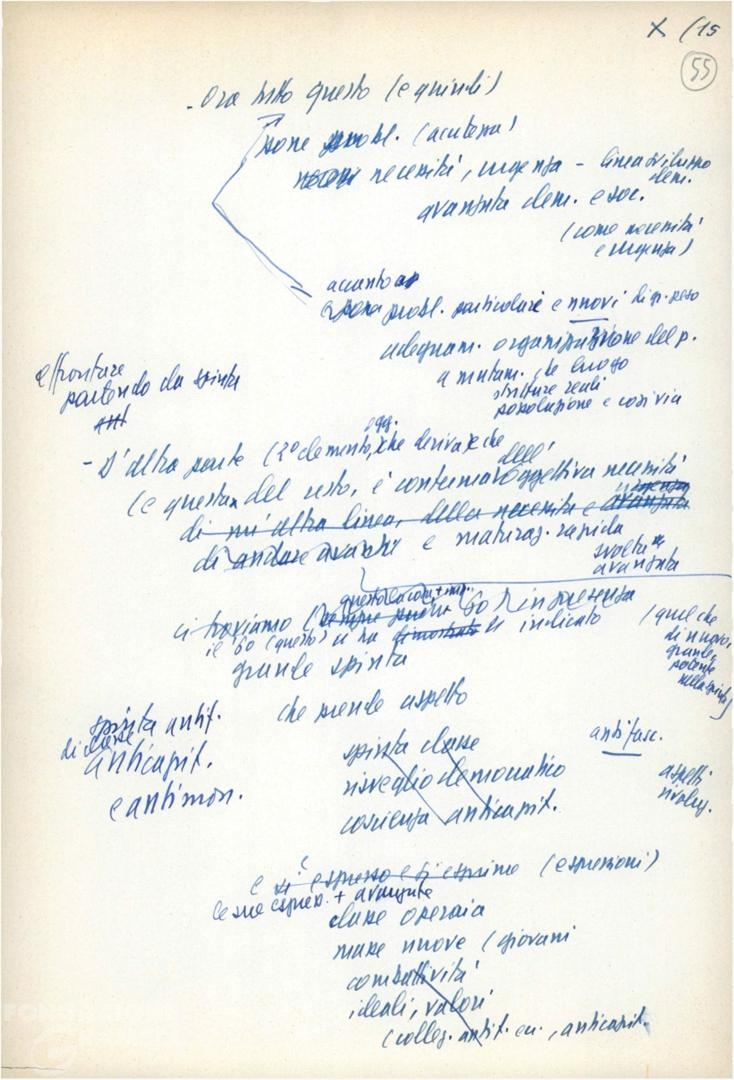 X (15
55
- Ora tutto questo (e quindi)
pone probl. (acutezza)
necessità, urgenza - linea sviluppo dem.
avanzata dem. e soc.
(come necessità
e urgenza)
accanto
pone probl. particolari e nuovi di gr. peso
adeguam. organizzazione del p.
a mutam. che luogo
strutture reali
popolazione e così via
affrontare
partendo da spinta
- D'altra parte (2° elemento, che deriva e che
ogg.
(e questa del resto, è conferma dell' oggettiva necessità
di un'altra linea, della necessità e avanzata
di andare avanti e maturaz. rapida
svolta
avanzata
ci troviamo
il 60 (questo) ci ha indicato
grande spinta
(quel che
di nuovo,
grande,
potente
nella spinta)
che prende aspetto
spinta antif.
di classe
anticapit.
e antimon.
spinta classe
risveglio democratico
coscienza anticapit.
antifasc.
aspetti
rivoluz.
e si è espresso e si esprime (espressioni)
le sue espress. + avanzate
classe operaia
masse nuove (giovani
combattività
ideali, valori
(colleg. antif. , anticapit.